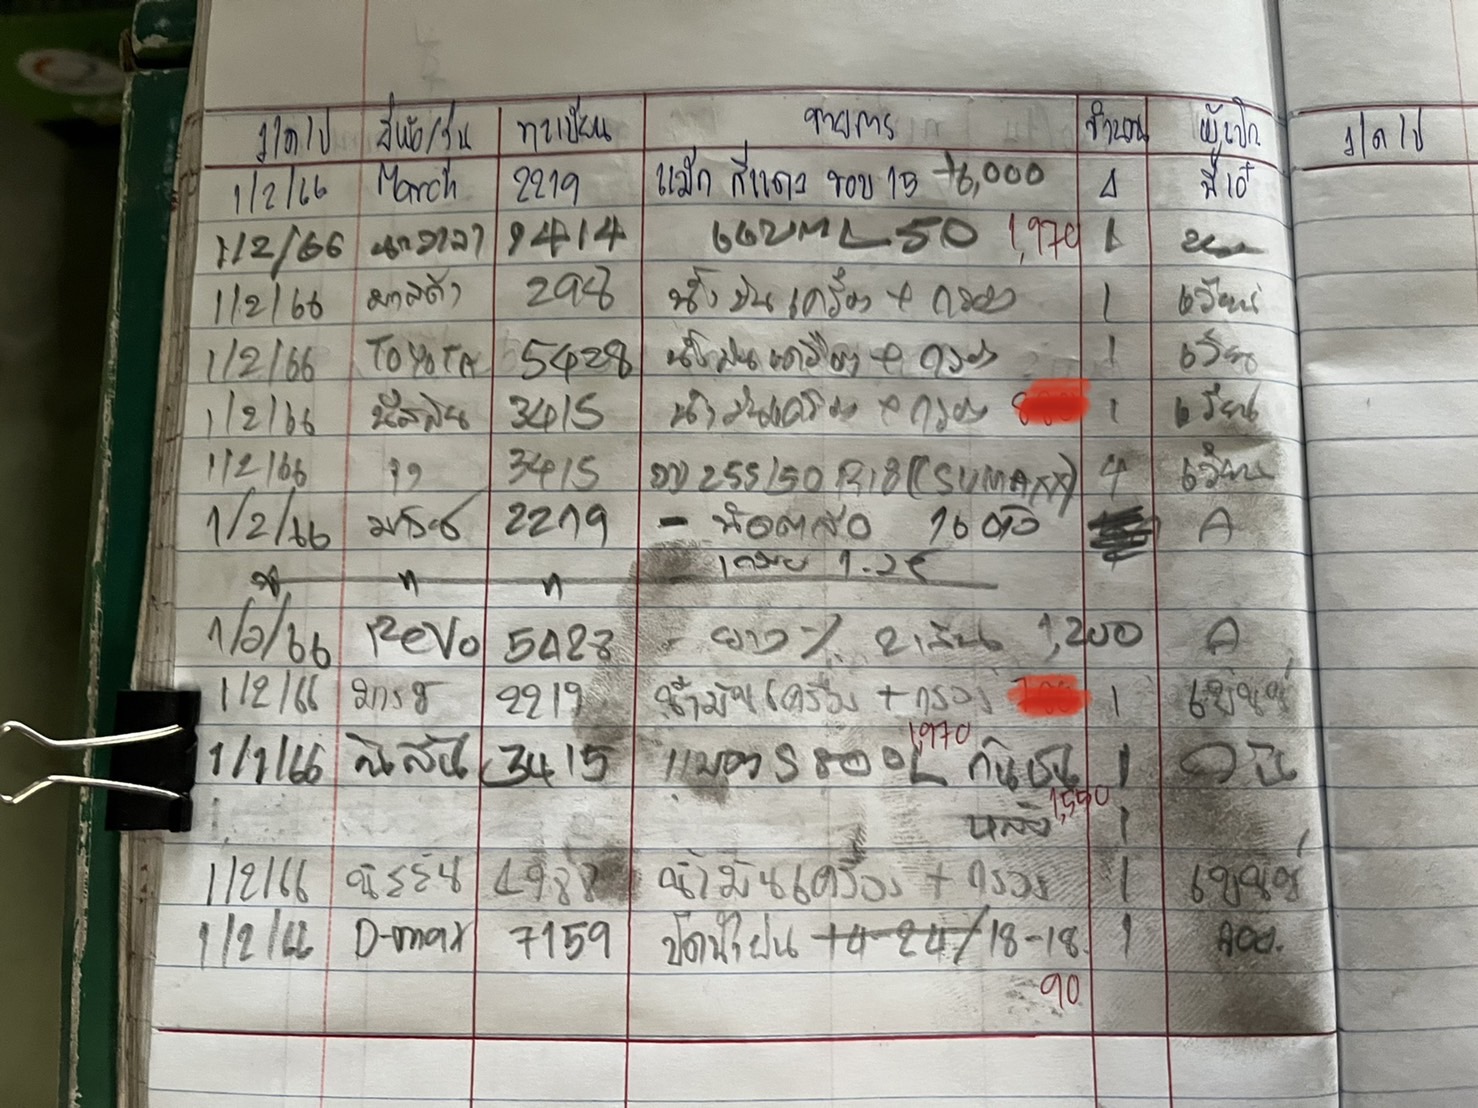 ว/ด/ป ยี่ห้อ/รุ่น ทะเบียน รายการ จำนวน ผู้เบิก ว/ด/ป
1/2/66 March 2219 แม็ก สีแดง ขอบ 15 +6,000 4 พี่เอ๋
1/2/66 9414 แบต L 50 1,970 1
1/2/66 มาสด้า 298 น้ำมันเครื่อง + กรอง 1 เวียน
1/2/66 TOYOTA 5428 น้ำมันเครื่อง + กรอง 1 เวียน
1/2/66 นิสสัน 3415 น้ำมันเครื่อง + กรอง 1 เวียน
1/2/66 3415 255/50 R18 4 เวียน
1/2/66 มาร์ช 2219 - น๊อตล้อ 16 ตัว A
เกลียว 1.25
1/2/66 Revo 5428 - 2 เส้น 1,200 A
1/2/66 มาร์ช 2219 น้ำมันเครื่อง + กรอง 1
1/2/66 นิสสัน 3415 1,970 กันชน 1
หลัง 1,550 1
1/2/66 นิสสัน 4988 น้ำมันเครื่อง + กรอง 1
1/2/66 D-max 7159 ปัดน้ำฝน 14-24/18-18 1
90